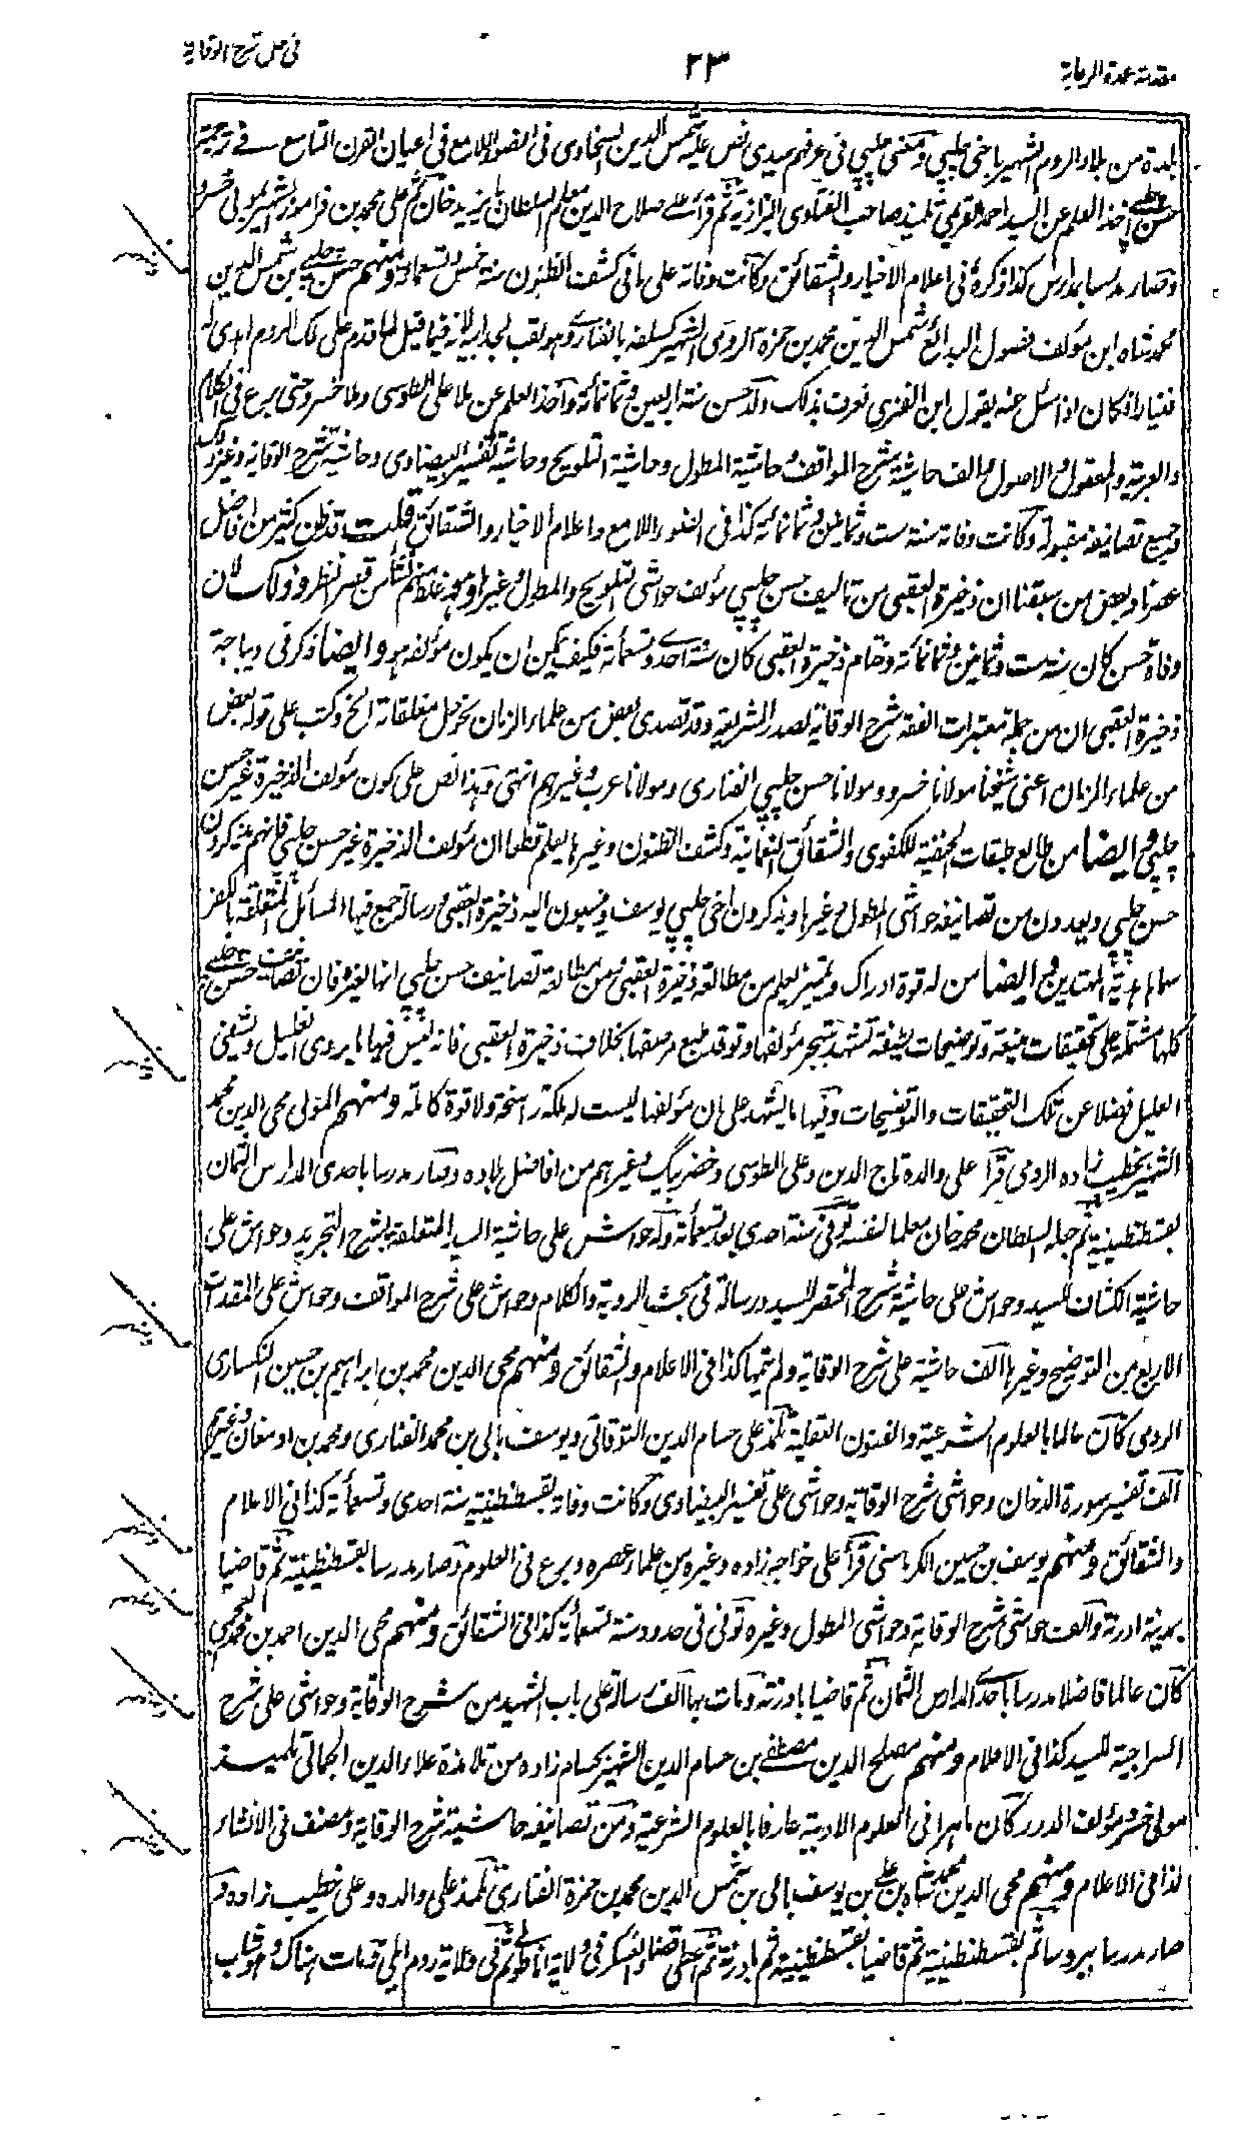 مقدمة عمدة الرعاية
٢٣
فی حل شرح الوقایة
بلدة من بلاد الروم الشهیر باخی چلپی ومعنی چلپی فی عرفهم سیدی نص علیه شمس الدین السخاوی فی الضوء اللامع فی اعیان القرن التاسع فے ترجمة
حسن چلپی اخذ العلم عن السید احمد القریمی تلمیذ صاحب الفتاوی البزازیة ثم قرأ علے صلاح الدین معلم السلطان بایزید خان ثم علی محمد بن فراموز الشهیر بمولی خسرو
وصار مدرسا بمدارس کذا ذکره فی اعلام الاخیار والشقائق وکانت وفاته علی ما فی کشف الظنون سنة خمس وتسعمائة ومنهم حسن چلپے بن شمس الدین
محمد شاه ابن مؤلف فصول البدائع شمس الدین محمد بن حمزة الرومی الشهیر کسلفه بالفنارے وهو لقب لجد ابیه لانه فیما قیل لما قدم علی ملک الروم اهدی له
فنیارا فکان اذا سئل عنه یقول ابن الفنری فعرف بذلک ولد حسن سنة اربعین وثمانمائة واخذ العلم عن ملا علی الطوسی وملا خسرو حتی برع فی الکلام
والعربیة والمعقول والاصول والف حاشیة شرح المواقف وحاشیة المطول وحاشیة التلویح وحاشیة تفسیر البیضاوی وحاشیة شرح الوقایة وغیر ذلک
وجمیع تصانیفه مقبولة وکانت وفاته سنة ست وثمانین وثمانمائة کذا فی الضوء اللامع واعلام الاخیار والشقائق قلت قد ظن کثیر من افاضل
عصرنا وبعض من سبقنا ان ذخیرة العقبی من تالیف حسن چلپی مؤلف حواشی التلویح والمطول وغیرها وهو غلط منهم نشأ من قصر النظر وذلک لان
وفاة حسن کان سنة ست وثمانین وثمانمائة وختام ذخیرة العقبی کان سنة احدے وتسعمائة فکیف یمکن ان یکون مؤلفه هو وایضا ذکر فی دیباجة
ذخیرة العقبی ان من جملة معتبرات الفقه شرح الوقایة لصدر الشریعة وقد تصدی بعض من علماء الزمان نحو حل مغلقاته الخ وکتب علی قوله بعض
من علماء الزمان اعنی شیخنا مولانا خسرو ومولانا حسن چلپی الفناری ومولانا عرب وغیرهم انتهی وهذا نص علی کون مؤلف الذخیرة غیر حسن
چلپی وایضا من طالع طبقات الحنفیة للکفوی والشقائق النعمانیة وکشف الظنون وغیرها یعلم قطعا ان مؤلف الذخیرة غیر حسن چلپی فانهم یذکرون
حسن چلپی ویعدون من تصانیفه حواشی المطول وغیرها ویذکرون اخی چلپی یوسف وینسبون الیه ذخیرة العقبی ورسالة جمع فیها المسائل المتعلقة بالکفر
سماها هدیة المهتدین وایضا من له قوة ادراک وتمییز یعلم من مطالعة ذخیرة العقبی ومن مطالعة تصانیف حسن چلپی انها لغیره فان تصانیف حسن چلپے
کلها مشتملة علی تحقیقات منیفة وتوضیحات لطیفة تشهد بتبحر مؤلفها وتوقد طبع مرصفها بخلاف ذخیرة العقبی فانه لیس فیها ما یروی الغلیل ویشفی
العلیل فضلا عن تلک التحقیقات والتوضیحات وفیها ما یشهد علی ان مؤلفها لیست له ملکة راسخة ولا قوة کاملة ومنهم المولی محی الدین محمد
الشهیر بخطیب زاده الرومی قرأ علی والده تاج الدین وعلی الطوسی وخضر بیگ وغیرهم من افاضل بلاده وصار مدرسا باحدی المدارس الثمان
بقسطنطینیة ثم جعله السلطان محمد خان معلما لنفسه توفی سنة احدی بعد تسعمائة وله حواش علی حاشیة السید المتعلقة بشرح التجرید وحواش علی
حاشیة الکشاف للسید وحواش علی حاشیة شرح المختصر للسید ورسالة فی بحث الرویة والکلام وحواش علی شرح المواقف وحواش علی المقدمات
الاربع من التوضیح وغیرها الف حاشیة علی شرح الوقایة ولم یتمها کذا فی الاعلام والشقائق ومنهم محی الدین محمد بن ابراهیم بن حسین النکساری
الرومی کان عالما بالعلوم الشرعیة والفنون العقلیة تلمذ علی حسام الدین التوقاتی ویوسف بالی بن محمد الفناری ومحمد بن ارمغان وغیرهم
الف تفسیر سورة الدخان وحواشی شرح الوقایة وحواشی علی تفسیر البیضاوی وکانت وفاته بقسطنطینیة سنة احدی وتسعمائة کذا فی الاعلام
والشقائق ومنهم یوسف بن حسین الکرماسنی قرأ علی خواجه زاده وغیره من علماء عصره وبرع فی العلوم وصار مدرسا بقسطنطینیة ثم قاضیا
بمدینة ادرنة والف حواشی شرح الوقایة وحواشی المطول وغیره توفی فی حدود سنة تسعمائة کذا فی الشقائق ومنهم محی الدین احمد بن محمد العجمی
کان عالما فاضلا مدرسا باحدے المدارس الثمان ثم قاضیا بادرنة ومات بها الف رسالة علی باب الشهید من شرح الوقایة وحواشی علی شرح
السراجیة للسید کذا فی الاعلام ومنهم مصلح الدین مصطفے بن حسام الدین الشهیر بحسام زاده من تلامذة علاء الدین الجمالی تلمیذ
مولی خسرو مؤلف الدرر کان ماهرا فی العلوم الادبیة عارفا بالعلوم الشرعیة ومن تصانیفه حاشیة شرح الوقایة ومصنف فی الانشاء
کذا فی الاعلام ومنهم محی الدین محمد شاه بن علی بن یوسف بالی بن شمس الدین محمد بن حمزة الفناری تلمذ علی والده وعلی خطیب زاده و
صار مدرسا ببروسا ثم بقسطنطینیة ثم قاضیا بقسطنطینیة ثم بادرنة ثم اعطی قضاء العسکر فی ولایة اناطولے ثم فی ولایة روم ایلی ومات هناک وهو شاب